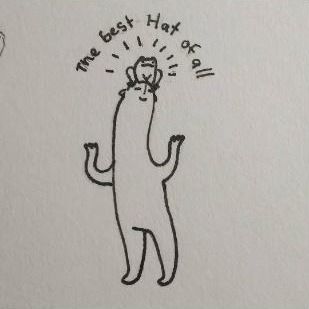 The best Hat of all